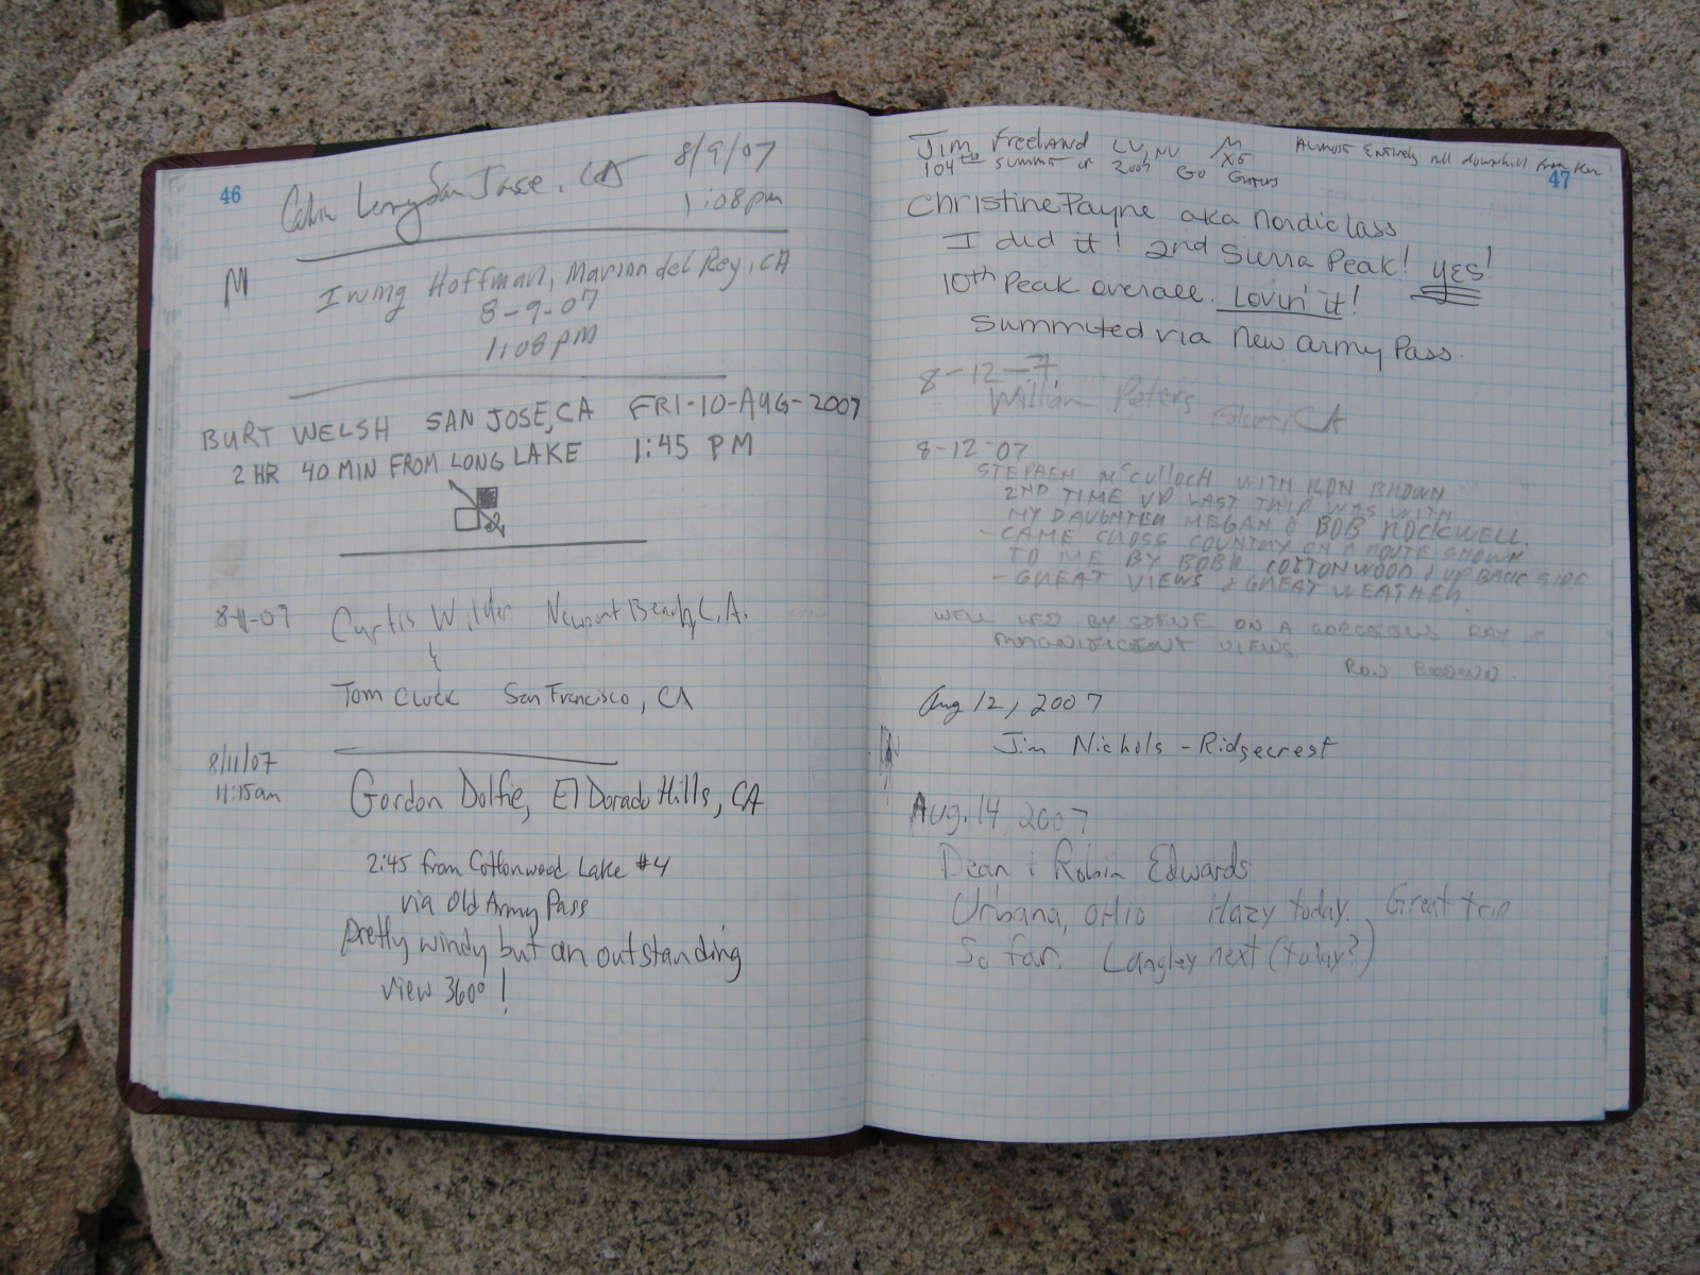 46
San Jose, CA 8/9/07
1:08pm
M
Irving Hoffman, Marina del Rey, CA
8-9-07
1:08 pm
BURT WELSH SAN JOSE, CA FRI-10-AUG-2007
2 HR 40 MIN FROM LONG LAKE 1:45 PM
8-11-07 Curtis Wilder Newport Beach, C.A.
&
Tom Cluck San Francisco, CA
8/11/07
11:15am
Gordon Dolfie, El Dorado Hills, CA
2:45 from Cottonwood Lake #4
via Old Army Pass
Pretty windy but an outstanding
view 360° !
47
Jim Freeland LV, NV M Almost Entirely all downhill from
104th summit of 2007 Go X5
Christine Payne aka Nordiclass
I did it! 2nd Sierra Peak! YES!
10th Peak overall. Lovin' it!
Summited via New Army Pass.
8-12-7
William Peters Folsom, CA
8-12-07
STEPHEN McCULLOCH WITH RON BROWN
2ND TIME UP LAST TRIP WAS WITH
MY DAUGHTER MEGAN & BOB ROCKWELL.
- CAME CROSS COUNTRY ON A ROUTE SHOWN
TO ME BY BOB COTTONWOOD & UP BACK SIDE
- GREAT VIEWS & GREAT WEATHER.
WELL LED BY STEVE ON A GORGEOUS DAY
MAGNIFICENT VIEWS.
RON BROWN
Aug 12, 2007
Jim Nichols - Ridgecrest
Aug. 14 2007
Dean & Robin Edwards
Urbana, OHIO Hazy today. Great trip
So far. Langley next (today?)